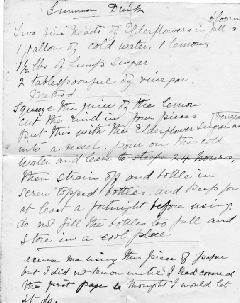 Summer Drink
Two fine heads of Elderflowers in full
1 gallon of cold water, 1 lemon
1½ lbs of lump sugar
2 tablespoonful of vinegar
Method
Squeeze the juice of the lemon
cut the rind in four pieces
Put this with the Elderflower sugar and
into a vessel, pour on the cold
water and leave to 24 hours,
then strain off and bottle in
screw topped bottles. and keep for
at least a fortnight before using.
do not fill the bottles too full and
store in a cool place
using this piece of paper
but I did not know until I had
the first page so thought I would let
it do.